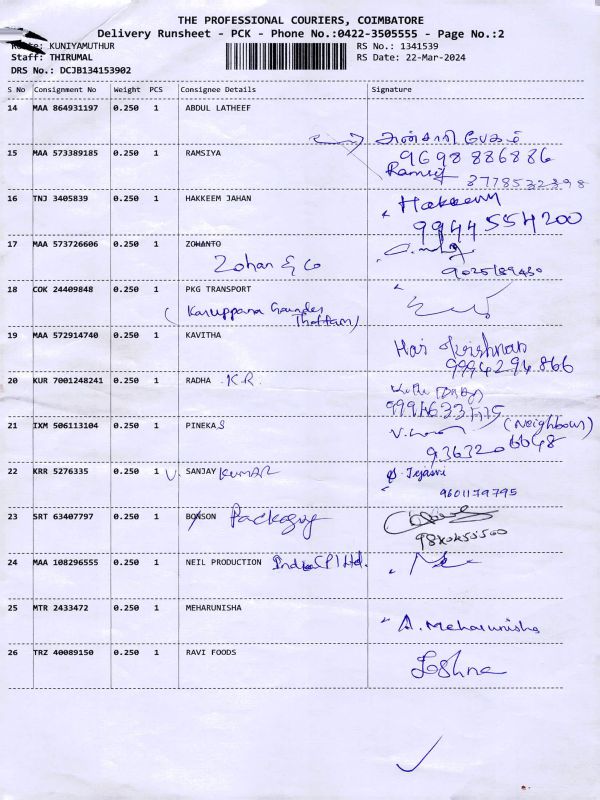 THE PROFESSIONAL COURIERS, COIMBATORE
Delivery Runsheet - PCK - Phone No.:0422-3505555 - Page No.:2
Route: KUNIYAMUTHUR
RS No.: 1341539
Staff: THIRUMAL
RS Date: 22-Mar-2024
DRS No.: DCJB134153902
S No Consignment No Weight PCS Consignee Details Signature
14 MAA 864931197 0.250 1 ABDUL LATHEEF
அன்சாரி பேகம்
15 MAA 573389185 0.250 1 RAMSIYA 9698886886
16 TNJ 3405839 0.250 1 HAKKEEM JAHAN Hakkeem
9944554200
17 MAA 573726606 0.250 1 ZOHANTO
Zohan & Co
18 COK 24409848 0.250 1 PKG TRANSPORT
(Karuppana Gounder
Thottam)
19 MAA 572914740 0.250 1 KAVITHA Hari Krishnan
9994294866
20 KUR 7001248241 0.250 1 RADHA K.R.
21 IXM 506113104 0.250 1 PINEKAS (Neighbour)
22 KRR 5276335 0.250 1 V. SANJAY Kumar Tejasri
9601179795
23 SRT 63407797 0.250 1 BONSON
24 MAA 108296555 0.250 1 NEIL PRODUCTION India (P) Ltd.
25 MTR 2433472 0.250 1 MEHARUNISHA A. Meharunisha
26 TRZ 40089150 0.250 1 RAVI FOODS